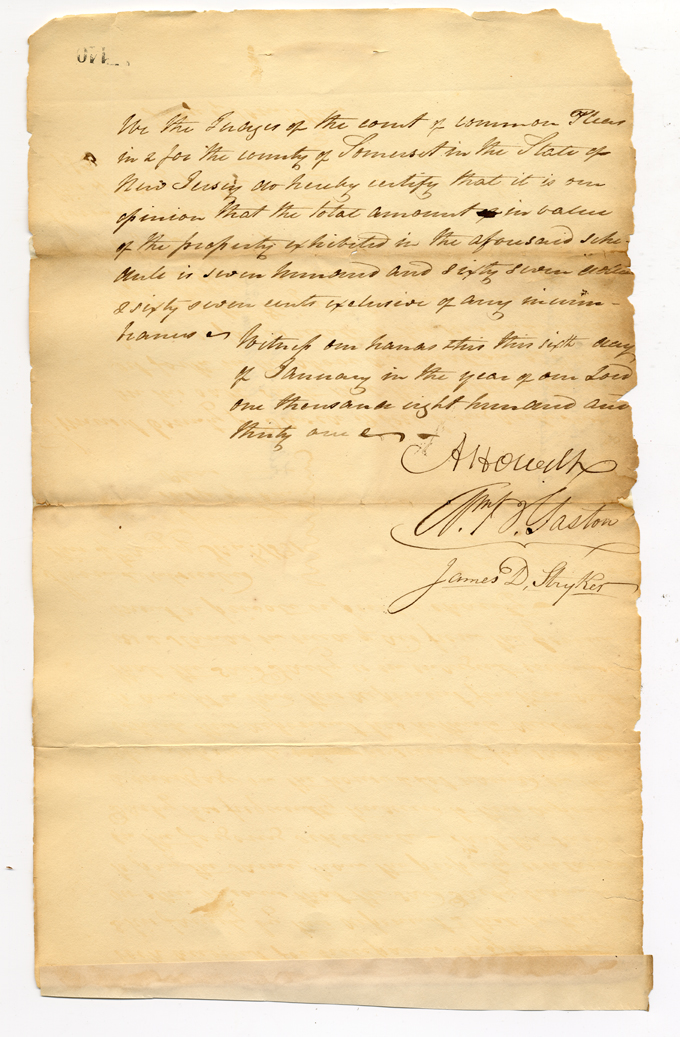 We the Judges of the court of common Pleas
in & for the county of Somerset in the State of
New Jersey do hereby certify that it is our
opinion that the total amount in value
of the property exhibited in the aforesaid sche
dule is seven hundred and sixty seven dollars
& sixty seven cents exclusive of any incum-
brances
Witness our hands this this sixth day
of January in the year of our Lord
one thousand eight hundred and
thirty one
A Howell
Wm J. Gaston
James D. Stryker